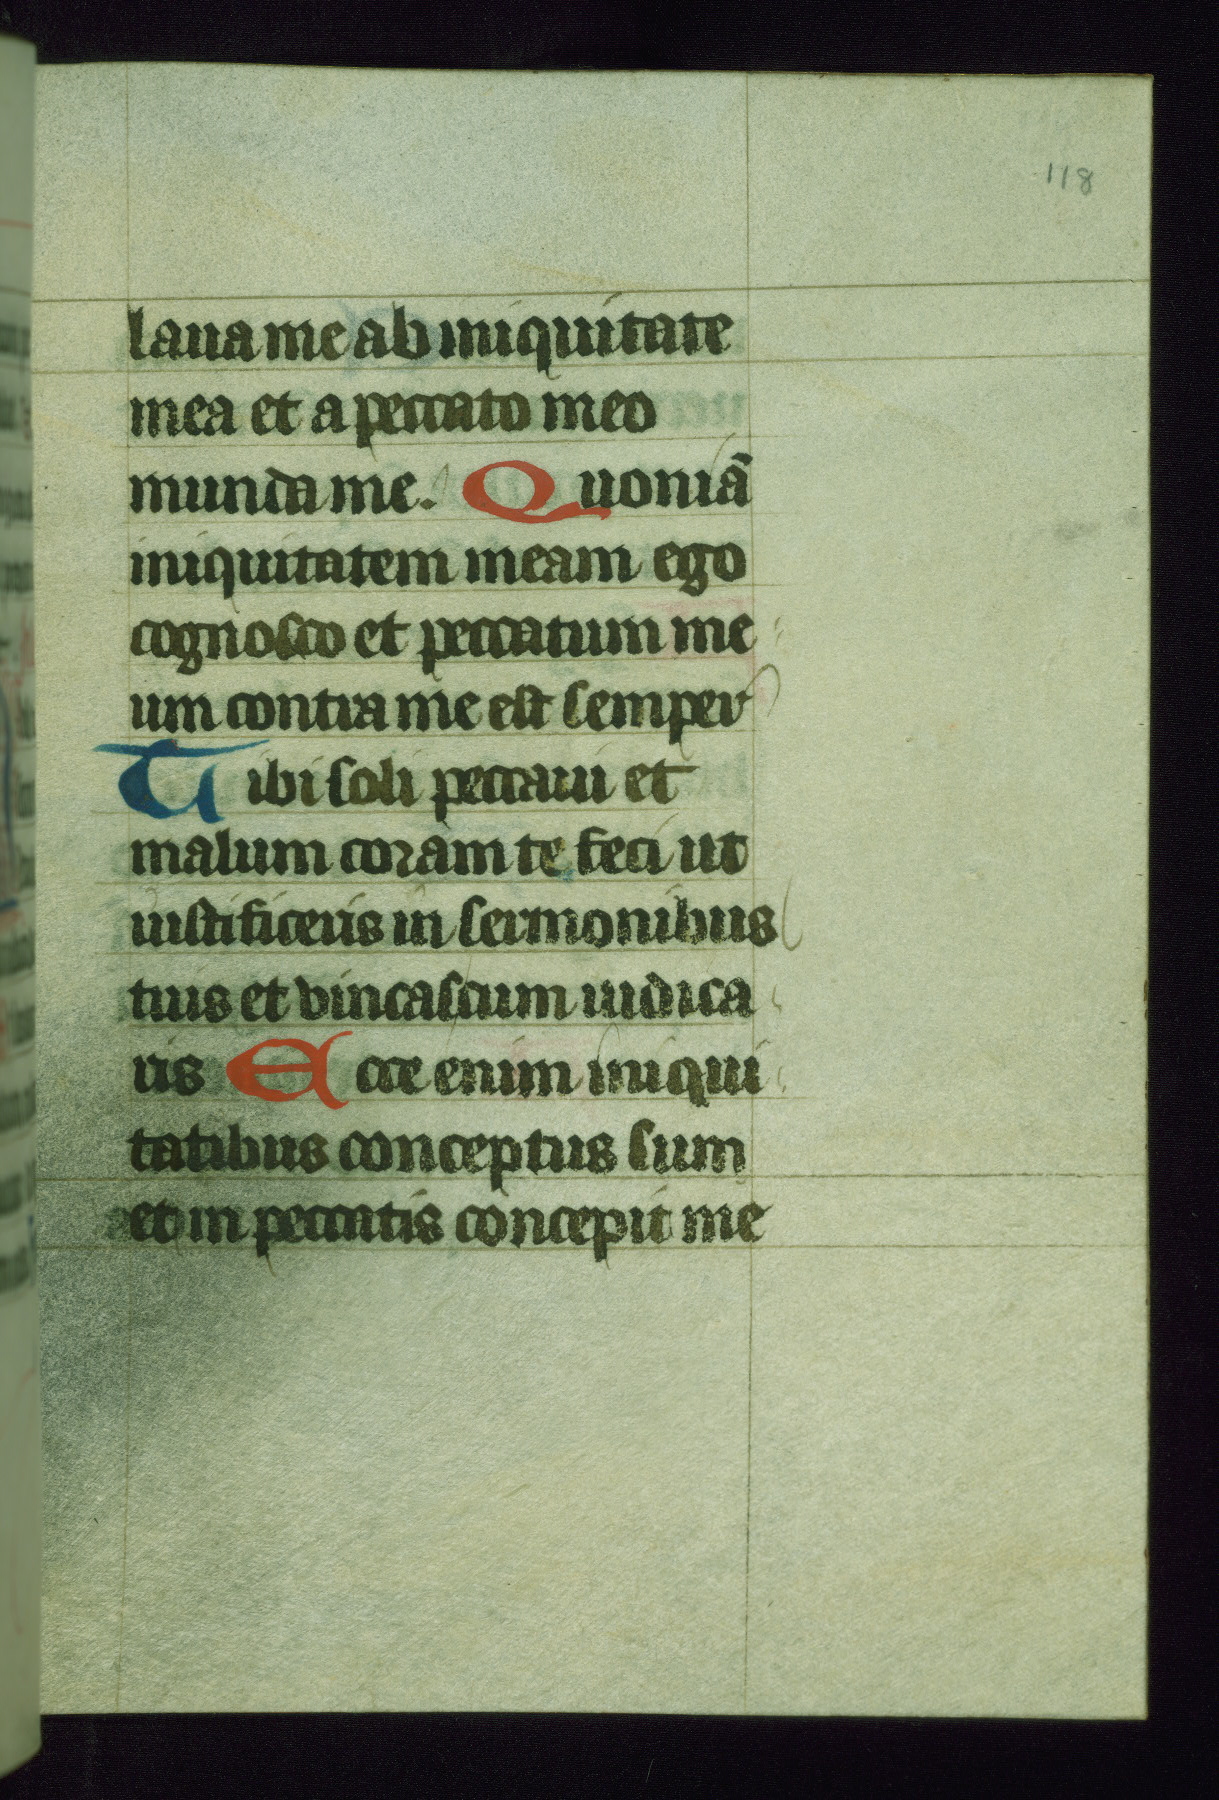 118
laua me ab iniquitate
mea et a peccato meo
munda me. Quoniā
iniquitatem meam ego
cognosco et peccatum me
um contra me est semper
Tibi soli peccaui et
malum coram te feci ut
iustificeris in sermonibus
tuis et vincas cum iudica
ris Ecce enim iniqui
tatibus conceptus sum
et in peccatis concepit me